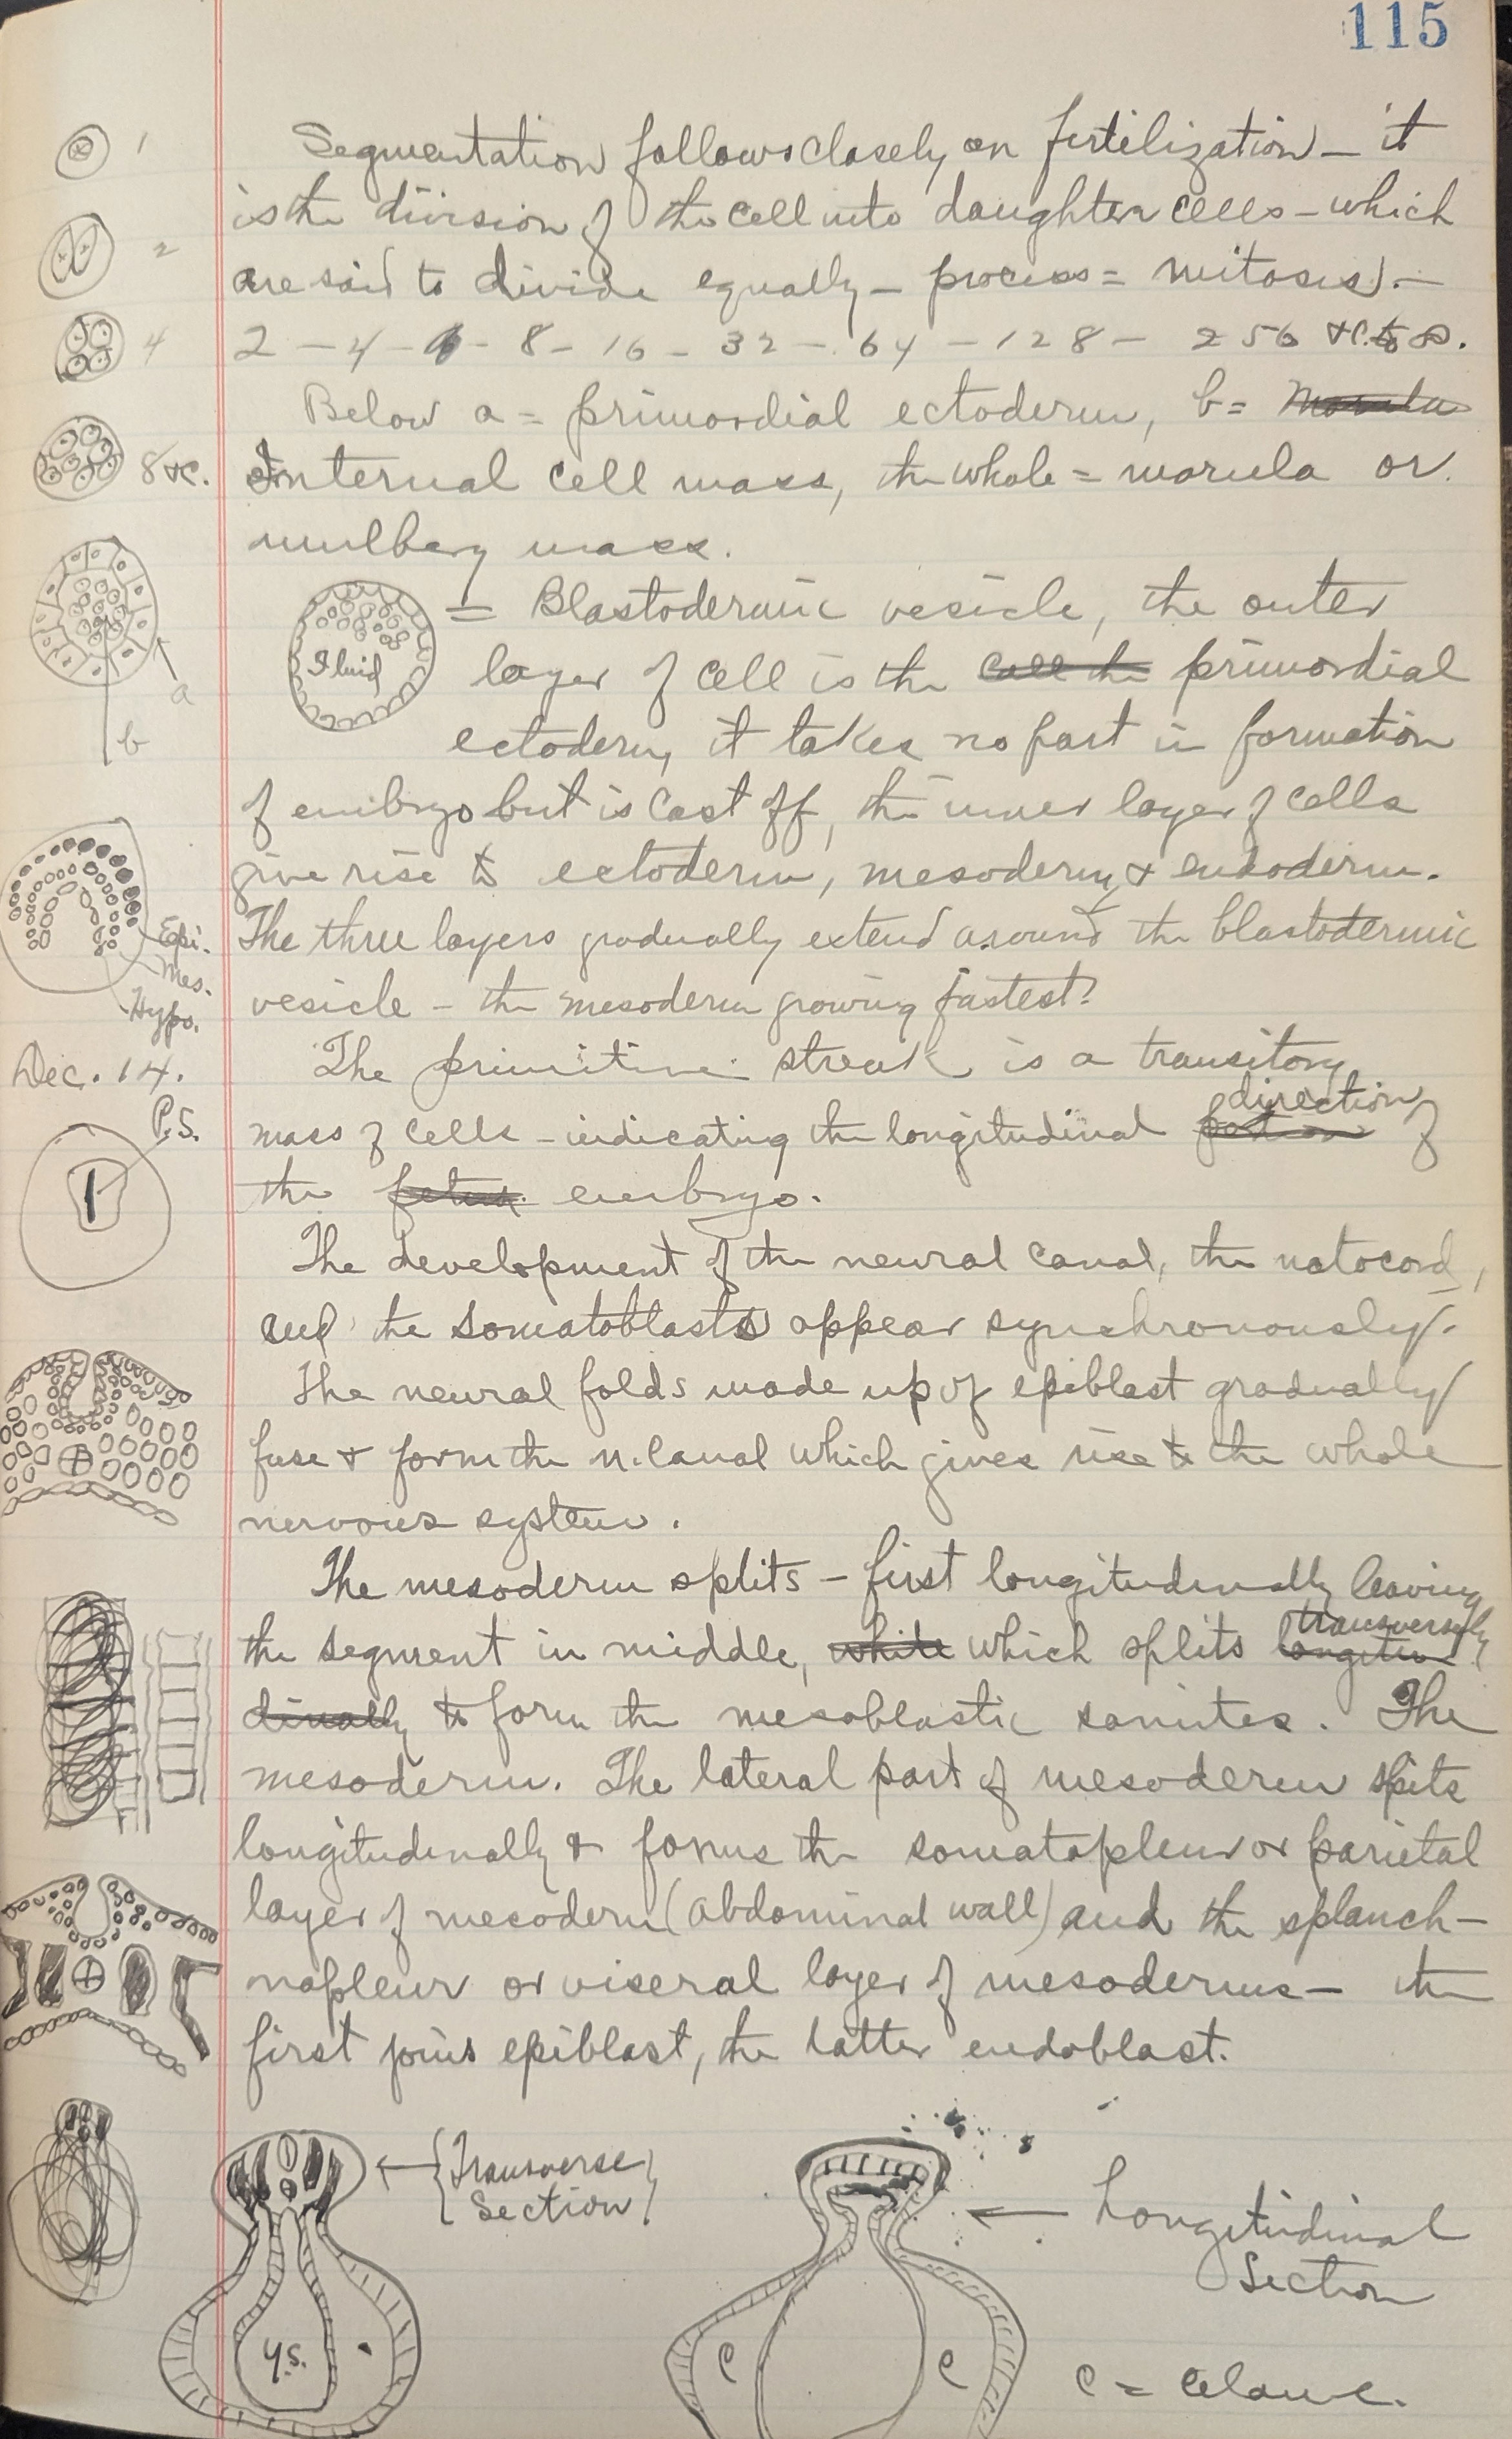 115
1
Segmentation follows closely on fertilization – it
2
is the division of the cell into daughter cells – which
are said to divide equally – process = mitosis. –
4
2 – 4 – 6 – 8 – 16 – 32 – 64 – 128 – 256 &c. to ∞.
Below a = primordial ectoderm, b = Morula
8 &c.
Internal cell mass, the whole = morula or
mulbery mass.
Fluid
= Blastodermic vesicle, the outer
layer of cell is the cell the primordial
a
b
ectoderm, it takes no part in formation
of embryo but is cast off, the inner layer of cells
give rise to ectoderm, mesoderm, & endoderm.
Epi.
Mes.
Hypo.
The three layers gradually extend around the blastodermic
vesicle – the mesoderm growing fastest?
Dec. 14.
The primitive streak is a transitory
P.S.
direction
mass of cells – indicating the longitudinal of
the fetus. embryo.
The development of the neural canal, the notocord,
and the somatoblasts appear synchronously.
The neural folds made up of epiblast gradually
fuse & form the n. canal which gives rise to the whole
nervous system.
The mesoderm splits – first longitudinally leaving
transversely
the segment in middle, while which splits longitu
dinally to form the mesoblastic somites. The
mesoderm. The lateral part of mesoderm spits
longitudinally & forms the somatopleur or parietal
layer of mesoderm (abdominal wall) and the splanch-
nopleur or viseral layer of mesoderms – the
first joins epiblast, the latter endoblast.
Transverse
Section
Longitudinal
Section
Y.S.
C
C
C = Celome.